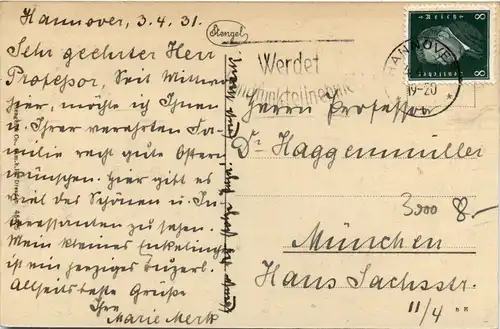 Hannover, 3.4.31.
Sehr geehrter Herr
Professor, Seit Mittwoch
hier, möchte ich Ihnen
u. Ihrer verehrten Fa-
milie recht gute Ostern
wünschen. Hier gibt es
viel des Schönen u. In-
teressanten zu sehen.
Mein kleines Enkelings
ist ein herziges Buzerl.
Allerseitsbeste Grüße
Ihre
Marie Merk
Stengel
Werdet
Rundfunkteilnehmer
HANNOVER
19-20
8
8
Herrn Professor
Dr Haggenmüller
3900 8.-
München
Hans Sachsstr.
11/4